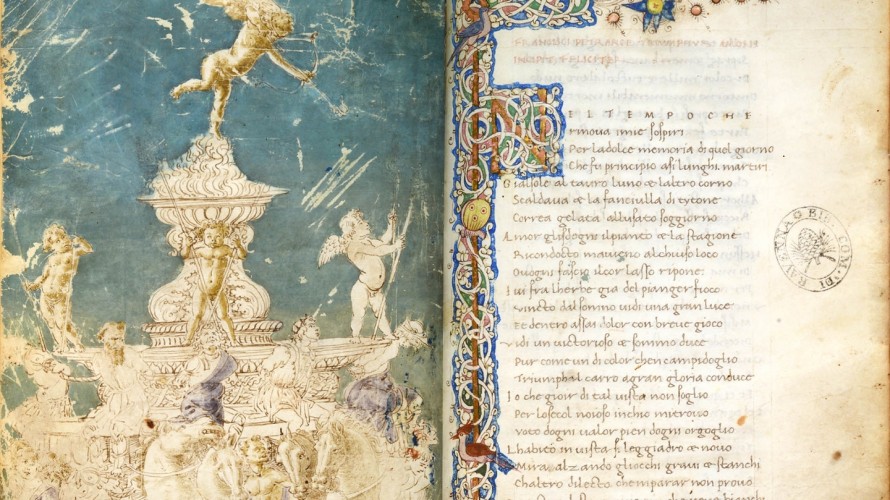 INCIPIT FELICITER
NEL TEMPO CHE
rinova imie sospiri
Per ladolce memoria di quel giorno
Che fu principio asi lunghi martiri
Gia sole al tauro luno & laltro corno
Scaldava & la fanciulla di tytone
Correa gelata allusato soggiorno
Amor glisdegni ilpianto & la stagione
Ricondocto al chiuso loco
Ovogni fascio ilcor lasso ripone
Ivi fra lherbe gia del pianger fioco
Vincto dal somno vidi una gran luce
Et dentro assai dolor con breve gioco
Vidi un victorioso & sommo duce
Pur come un di color chen campidoglio
Triumphal carro a gran gloria conduce
Io che gioir di tal vista non soglio
Per losecol noioso inchio mitrovo
Voto dogni valor pien dogni orgoglio
Lhabito in vista si leggiadro & novo
Mirai alzando gliocchi gravi & stanchi
Chaltro dilecto chemparar non provo
BIBL. COM. DI RAVENNA